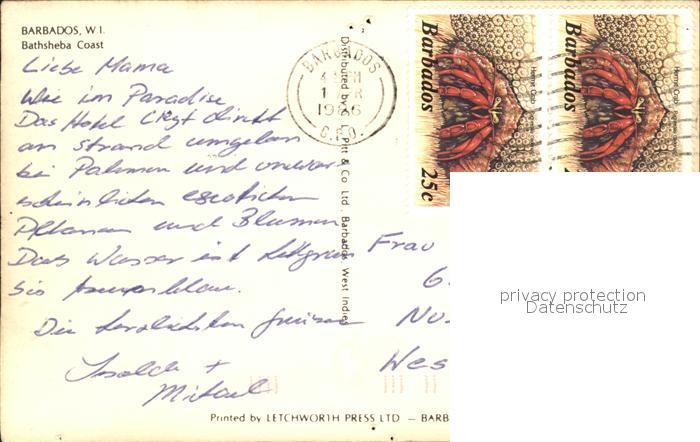 BARBADOS, W.I.
Bathsheba Coast
Liebe Mama
Wie im Paradise
Das Hotel liegt direkt
am Strand umgeben
bei Palmen und unwar-
scheinlichen exotischen
Pflanzen und Blumen
Das Wasser ist hellgrün
bis
Die herzlichsten Grüsse
Isolde +
Michael
Distributed by Pitt & Co Ltd., Barbados, West Indies
Printed by LETCHWORTH PRESS LTD — BARB
BARBADOS
1986
G.P.O.
Barbados
25c
Hermit Crab
Barbados
Hermit Crab
Frau
6
No
Wes
privacy protection
Datenschutz